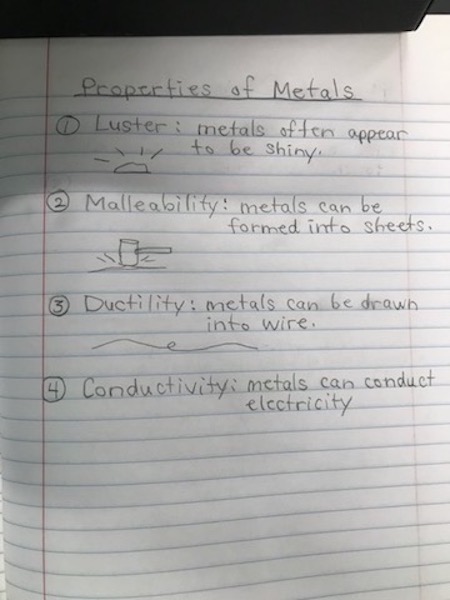 Properties of Metals
① Luster: metals often appear
to be shiny.
② Malleability: metals can be
formed into sheets.
③ Ductility: metals can be drawn
into wire.
④ Conductivity: metals can conduct
electricity